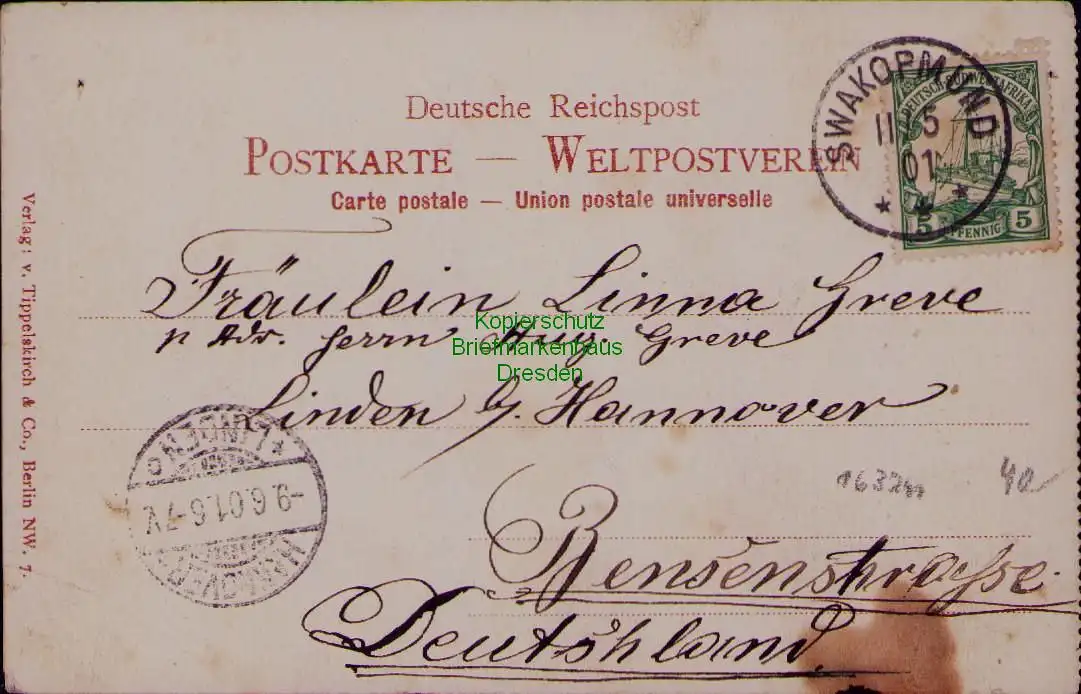 Deutsche Reichspost
POSTKARTE — WELTPOSTVEREIN
Carte postale — Union postale universelle
SWAKOPMUND
11 5
01
DEUTSCH-SÜDWESTAFRIKA
5 PFENNIG 5
Fräulein Linna Greve
p Adr. Herrn Aug. Greve
Linden b/. Hannover
Bensenstrasse.
Deutshland.
Kopierschutz
Briefmarkenhaus
Dresden
*LINDEN*
-9.6.01.6-7V.
HANNOVER
Verlag: v. Tippelskirch & Co., Berlin NW. 7.